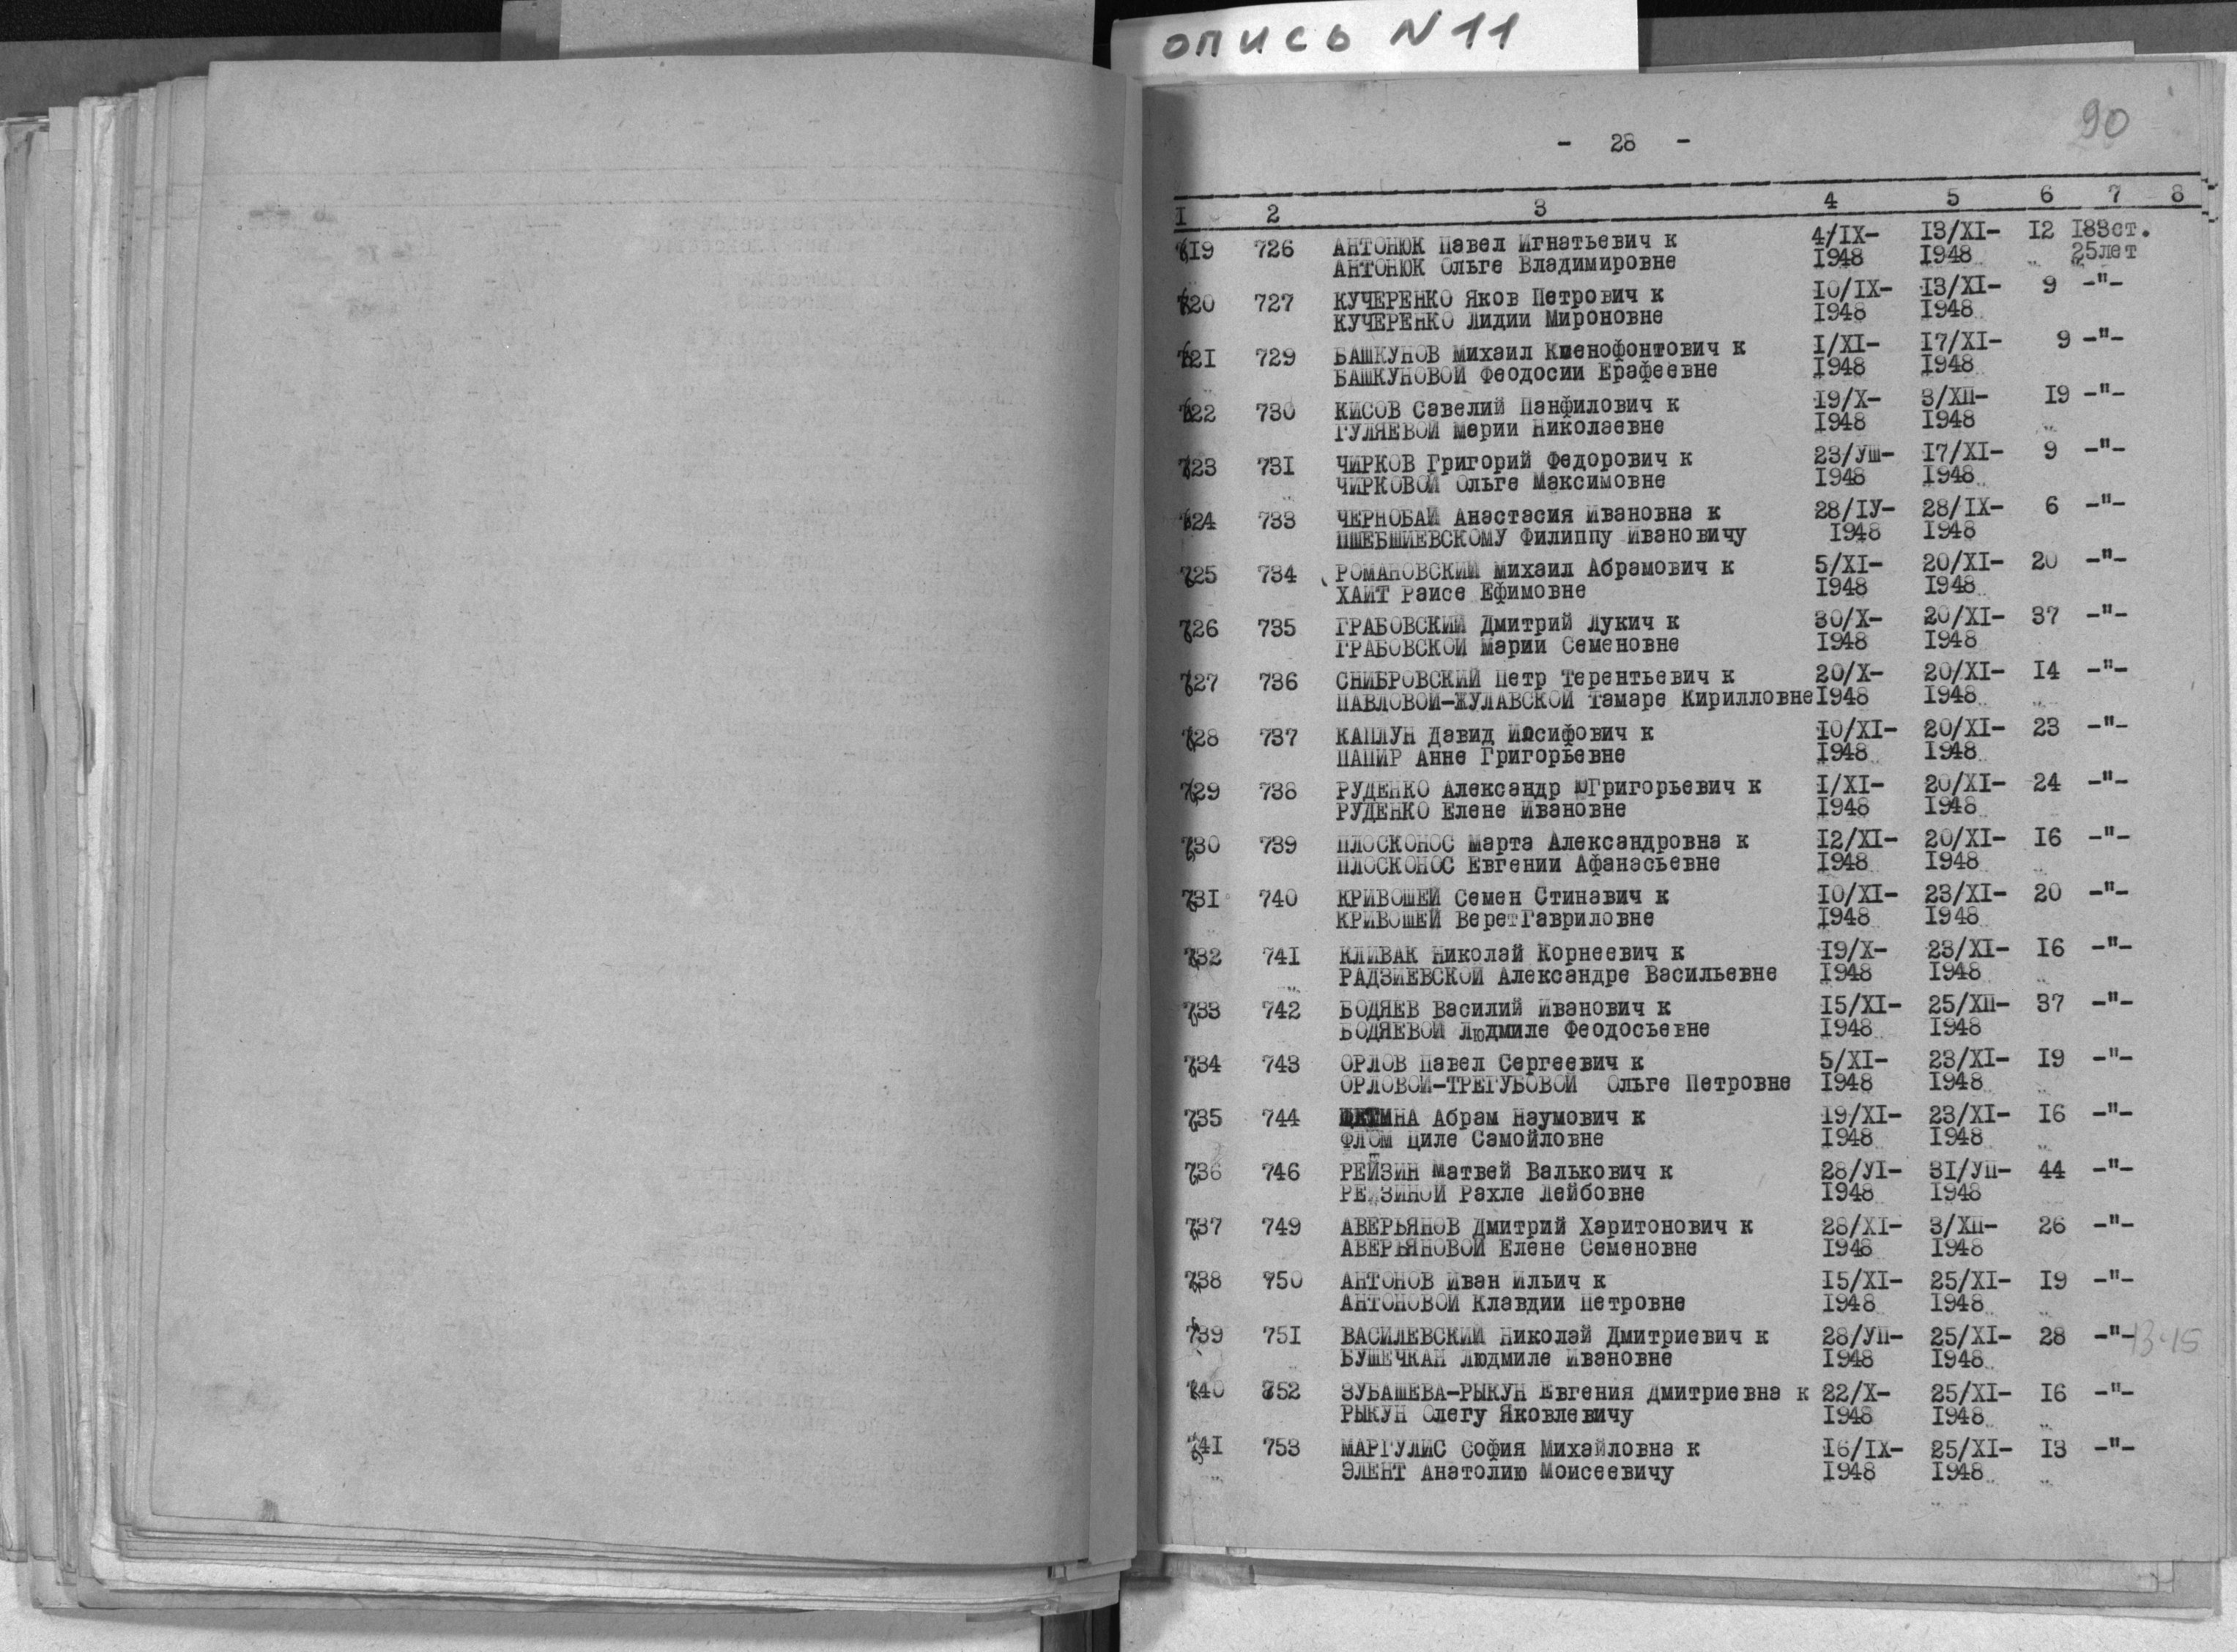 опись N 11
90
- 28 -
I 2 3 4 5 6 7 8
719 726 АНТОНЮК Павел Игнатьевич к 4/IX- 13/XI- 12 183ст.
АНТОНЮК Ольге Владимировне 1948 1948 25лет
720 727 КУЧЕРЕНКО Яков Петрович к 10/IX- 13/XI- 9 -"-
КУЧЕРЕНКО Лидии Мироновне 1948 1948
721 729 БАШКУНОВ Михаил Ксенофонтович к I/XI- 17/XI- 9 -"-
БАШКУНОВОЙ Феодосии Ерафеевне 1948 1948
722 730 КИСОВ Савелий Панфилович к 19/X- 3/XП- 19 -"-
ГУЛЯЕВОЙ Марии Николаевне 1948 1948
723 731 ЧИРКОВ Григорий Федорович к 23/УШ- 17/XI- 9 -"-
ЧИРКОВОЙ Ольге Максимовне 1948 1948
724 733 ЧЕРНОБАЙ Анастасия Ивановна к 28/IУ- 28/IX- 6 -"-
ПШЕБШИЕВСКОМУ Филиппу Ивановичу 1948 1948
725 734 РОМАНОВСКИЙ Михаил Абрамович к 5/XI- 20/XI- 20 -"-
ХАИТ Раисе Ефимовне 1948 1948
726 735 ГРАБОВСКИЙ Дмитрий Лукич к 30/X- 20/XI- 37 -"-
ГРАБОВСКОЙ Марии Семеновне 1948 1948
727 736 СНИБРОВСКИЙ Петр Терентьевич к 20/X- 20/XI- 14 -"-
ПАВЛОВОЙ-ЖУЛАВСКОЙ Тамаре Кирилловне 1948 1948
728 737 КАПЛУН Давид Иосифович к 10/XI- 20/XI- 23 -"-
ПАПИР Анне Григорьевне 1948 1948
729 738 РУДЕНКО Александр ЮГригорьевич к I/XI- 20/XI- 24 -"-
РУДЕНКО Елене Ивановне 1948 1948
730 739 ПЛОСКОНОС Марта Александровна к 12/XI- 20/XI- 16 -"-
ПЛОСКОНОС Евгении Афанасьевне 1948 1948
731 740 КРИВОШЕЙ Семен Стинавич к 10/XI- 23/XI- 20 -"-
КРИВОШЕЙ ВеретГавриловне 1948 1948
732 741 КЛИВАК Николай Корнеевич к 19/X- 23/XI- 16 -"-
РАДЗИЕВСКОЙ Александре Васильевне 1948 1948
733 742 БОДЯЕВ Василий Иванович к 15/XI- 25/XП- 37 -"-
БОДЯЕВОЙ Людмиле Феодосьевне 1948 1948
734 743 ОРЛОВ Павел Сергеевич к 5/XI- 23/XI- 19 -"-
ОРЛОВОЙ-ТРЕГУБОВОЙ Ольге Петровне 1948 1948
735 744 Абрам Наумович к 19/XI- 23/XI- 16 -"-
ФЛОМ Циле Самойловне 1948 1948
736 746 РЕЙЗИН Матвей Валькович к 28/УI- 31/УП- 44 -"-
РЕЙЗИНОЙ Рахле Лейбовне 1948 1948
737 749 АВЕРЬЯНОВ Дмитрий Харитонович к 28/XI- 3/XП- 26 -"-
АВЕРЬЯНОВОЙ Елене Семеновне 1948 1948
738 750 АНТОНОВ Иван Ильич к 15/XI- 25/XI- 19 -"-
АНТОНОВОЙ Клавдии Петровне 1948 1948
739 751 ВАСИЛЕВСКИЙ Николай Дмитриевич к 28/УП- 25/XI- 28 -"- 13-15
БУШЕЧКАН Людмиле Ивановне 1948 1948
740 752 ЗУБАШЕВА-РЫКУН Евгения Дмитриевна к 22/X- 25/XI- 16 -"-
РЫКУН Олегу Яковлевичу 1948 1948
741 753 МАРГУЛИС София Михайловна к 16/IX- 25/XI- 13 -"-
ЭЛЕНТ Анатолию Моисеевичу 1948 1948